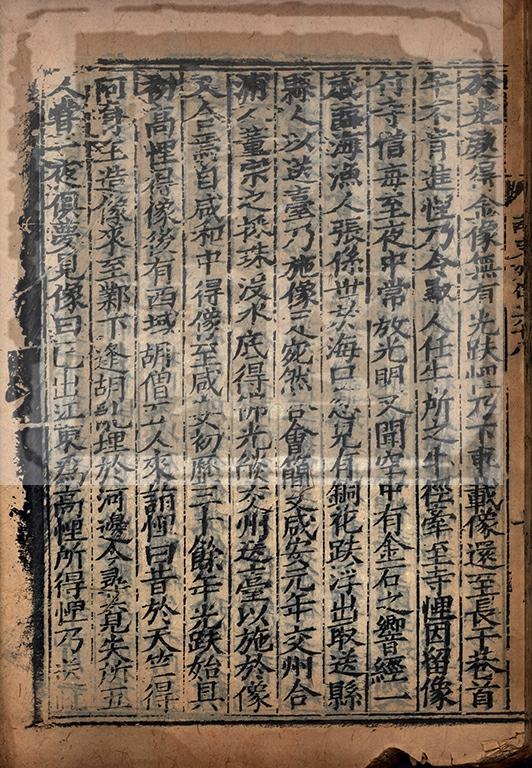 於光處得金像無有光趺悝乃下車載像還至長干巷首
牛不肯進悝乃令馭人任牛所之牛徑牽至寺悝因留像
付寺僧每至夜中常放光明又聞空中有金石之響經一
歲臨海漁人張係世於海口忽見有銅花趺浮出取送縣
縣人以送臺乃施像足宛然合會簡文咸安元年交州合
浦人董宗之採珠沒水底得佛光燄交州送臺以施於像
又合焉自咸和中得像至咸安初歷三十餘年光趺始具
初高悝得像後有西域胡僧五人來詣悝曰昔於天竺得
阿育王造像來至鄴下逢胡亂埋於河邊今尋覓失所五
人嘗一夜俱夢見像曰已出江東爲高悝所得悝乃送